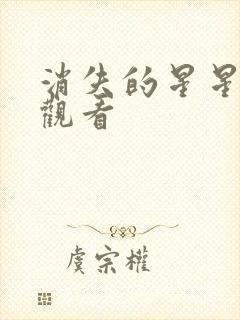 消失的星星
觀看
虞宗權